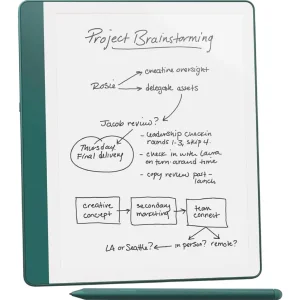 Project Brainstorming
creative oversight
Rosie
delegate assets
Jacob review?
Thursday!
Final delivery
- leadership check in
rounds 1-3, skip 4
- check in with Laura
on turn around time
- copy review post-
launch
creative
concept
secondary
marketing
team
connect
LA or Seattle?
in person?
remote?